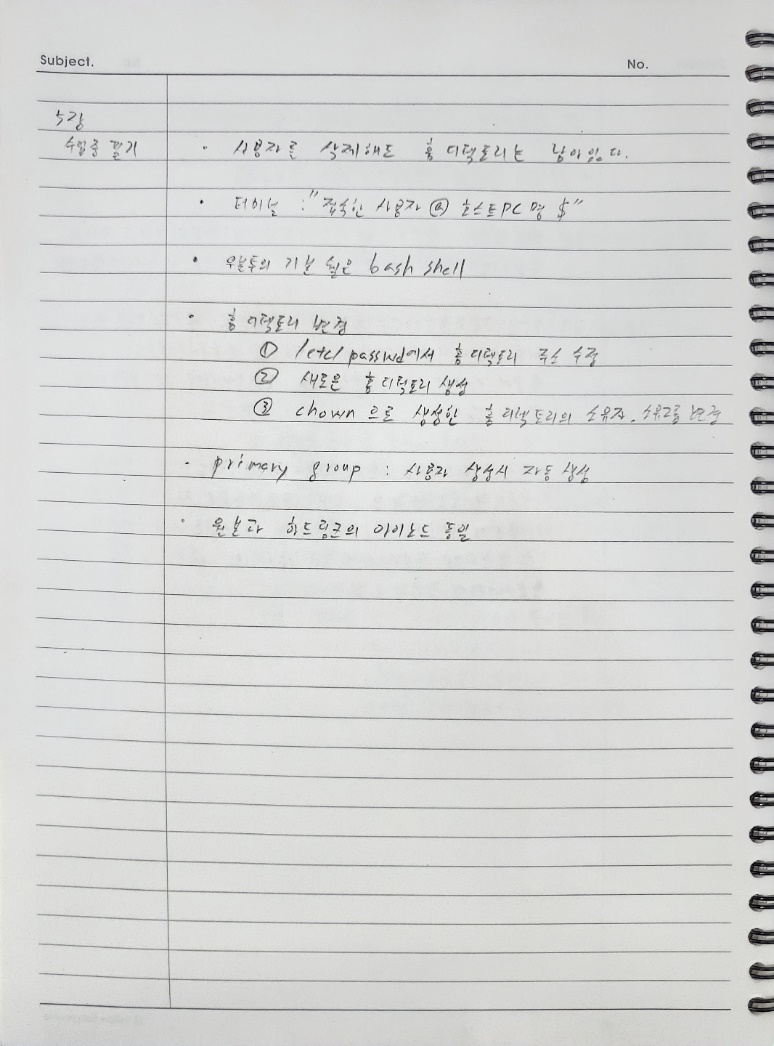 Subject.
No.
5강
수업중 필기
· 사용자를 삭제해도 홈 디렉토리는 남아있다.
· 터미널 : "접속한 사용자 @ 호스트PC 명 $"
· 우분투의 기본 쉘은 bash shell
· 홈 디렉토리 변경
① /etc/passwd에서 홈 디렉토리 주소 수정
② 새로운 홈 디렉토리 생성
③ chown 으로 생성한 홈 디렉토리의 소유자, 소유그룹 변경
· primary group : 사용자 생성시 자동 생성
· 원본과 하드링크의 아이노드 동일